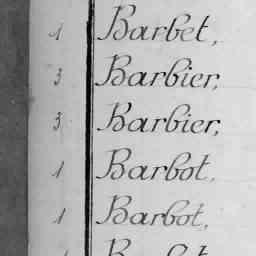 1 Barbet,
3 Barbier,
3 Barbier,
1 Barbot,
1 Barbot,